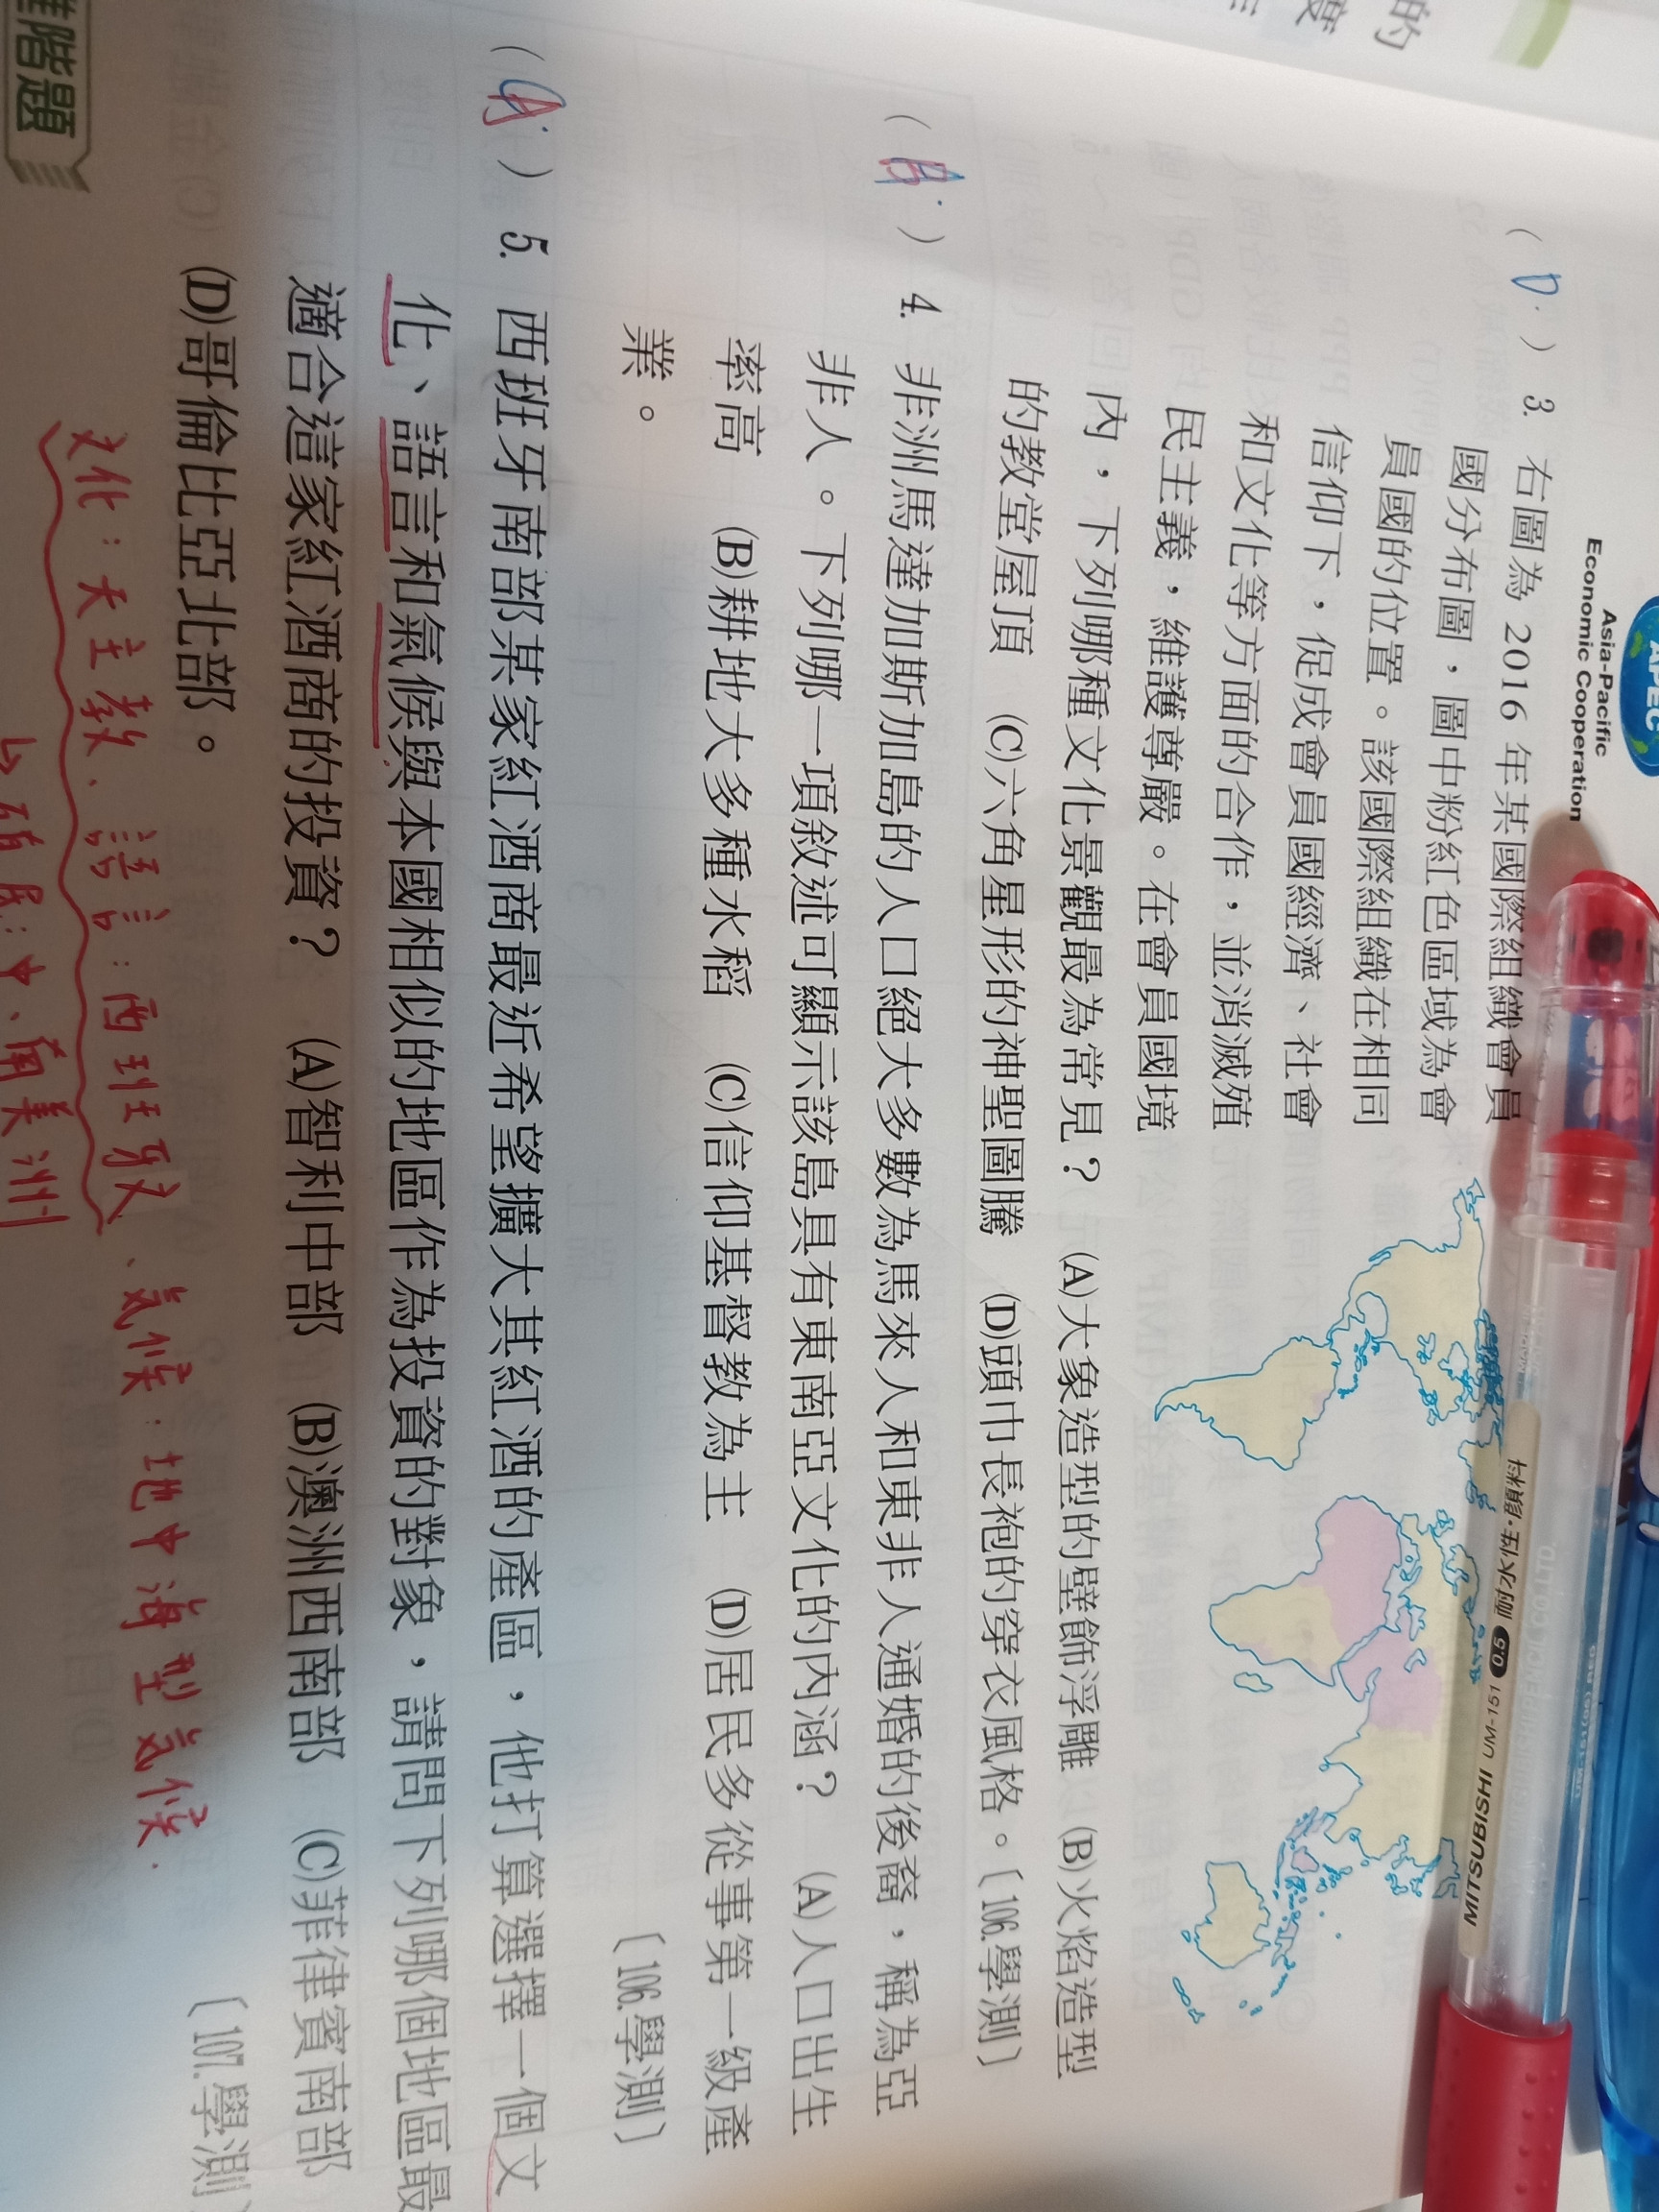 的
度
APEC
Asia-Pacific
Economic Cooperation
(D.) 3. 右圖為 2016 年某國際組織會員
國分布圖，圖中粉紅色區域為會
員國的位置。該國際組織在相同
信仰下，促成會員國經濟、社會
和文化等方面的合作，並消滅殖
民主義，維護尊嚴。在會員國境
內，下列哪種文化景觀最為常見？ (A)大象造型的壁飾浮雕 (B)火焰造型
的教堂屋頂 (C)六角星形的神聖圖騰 (D)頭巾長袍的穿衣風格。〔106.學測〕
( ) 4. 非洲馬達加斯加島的人口絕大多數為馬來人和東非人通婚的後裔，稱為亞
非人。下列哪一項敘述可顯示該島具有東南亞文化的內涵？ (A)人口出生
率高 (B)耕地大多種水稻 (C)信仰基督教為主 (D)居民多從事第一級產
業。 〔106.學測〕
(A.) 5. 西班牙南部某家紅酒商最近希望擴大其紅酒的產區，他打算選擇一個文
化、語言和氣候與本國相似的地區作為投資的對象，請問下列哪個地區最
適合這家紅酒商的投資？ (A)智利中部 (B)澳洲西南部 (C)菲律賓南部
(D)哥倫比亞北部。 〔107.學測〕
文化：天主教、語言：西班牙文、氣候：地中海型氣候.
中、南美洲
階題
耐水性 0.5 UM-151 MITSUBISHI